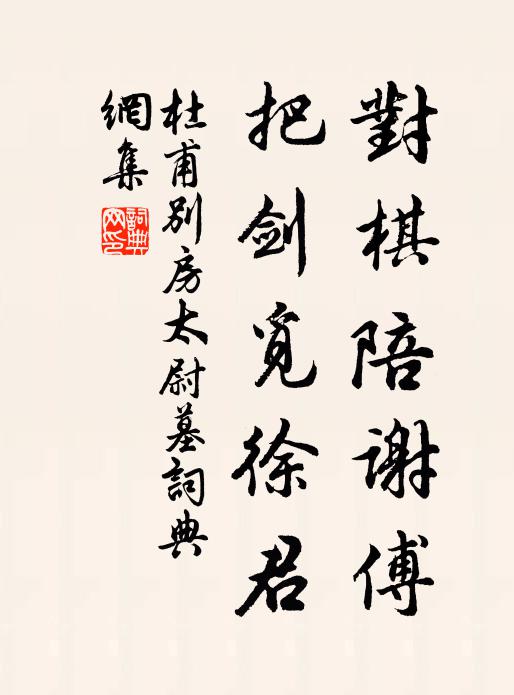 對棋陪谢傅
把剑覓徐君
杜甫别房太尉墓詞典
網集
詞典
网印